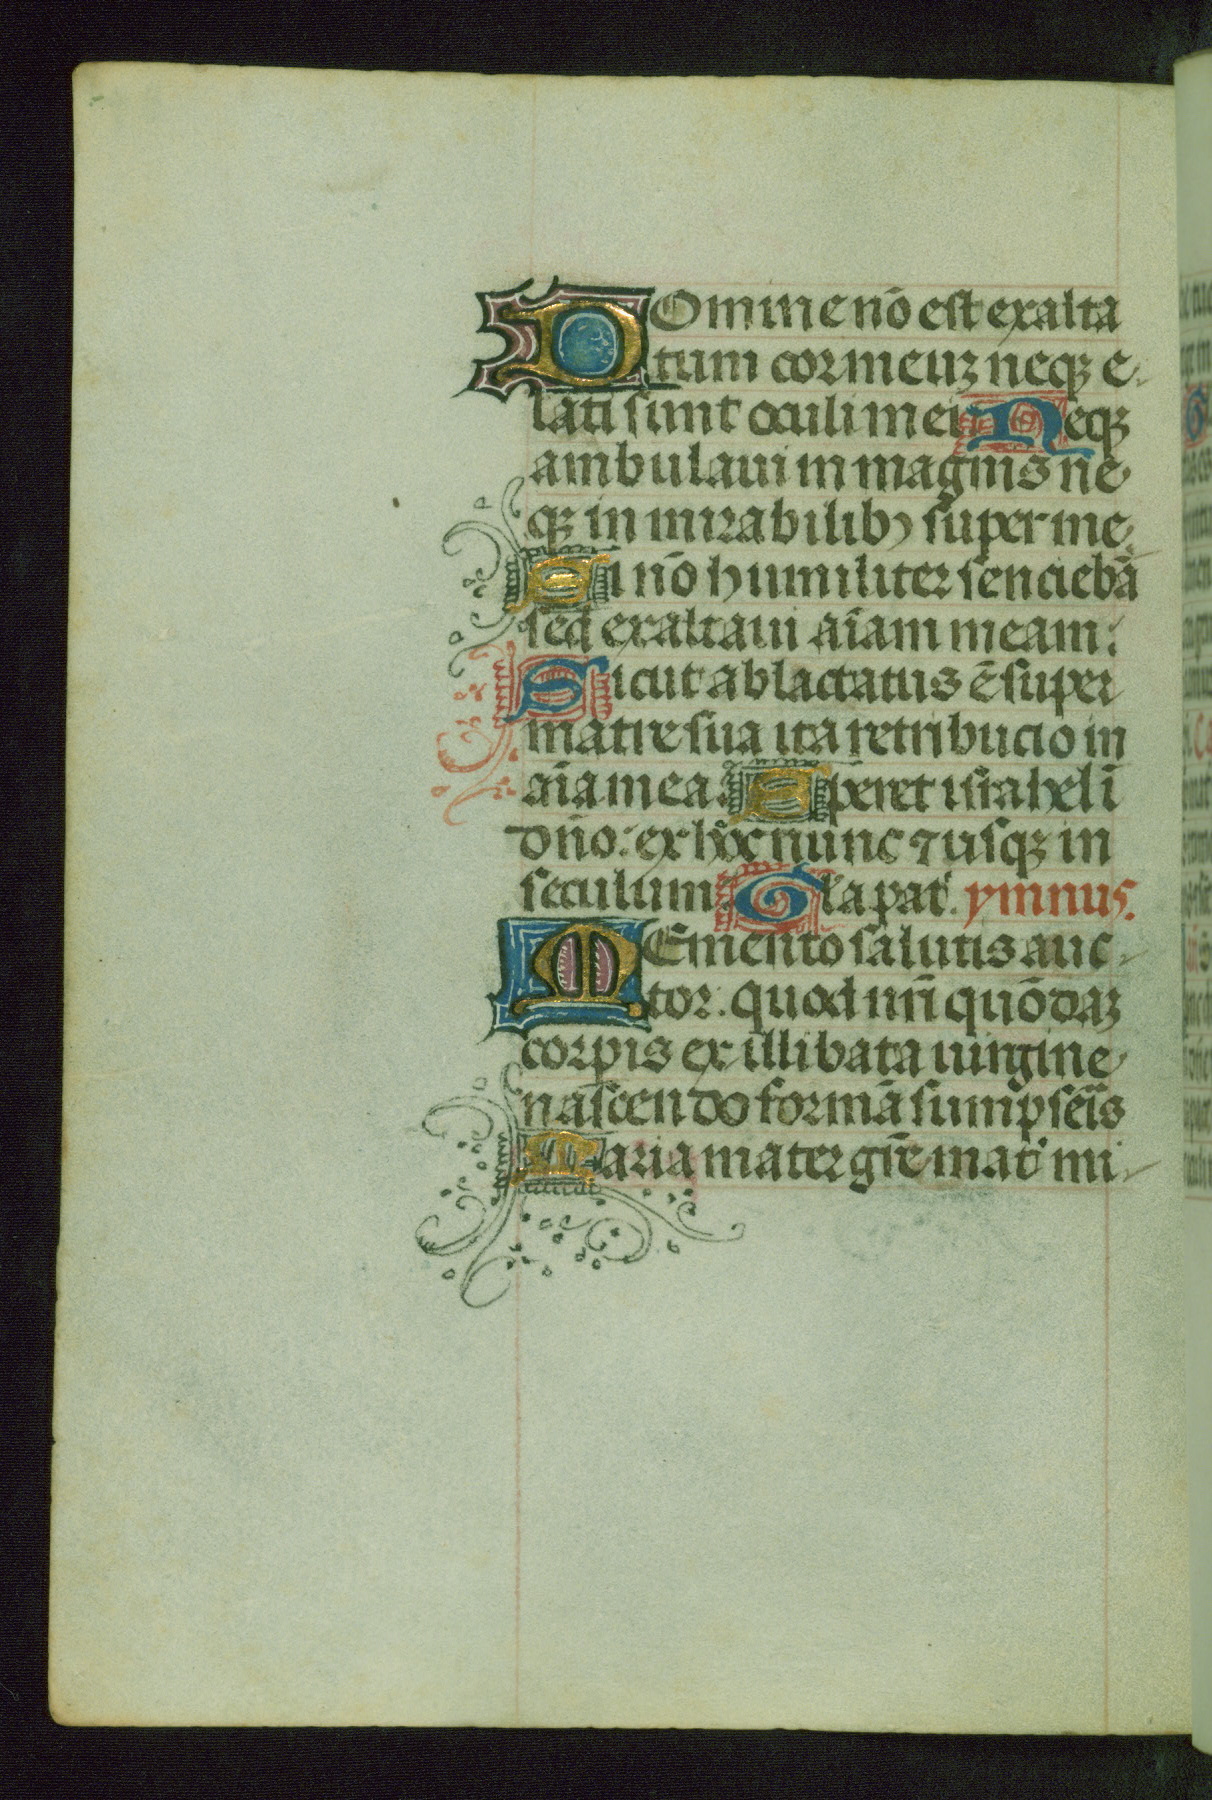 DOmine nō est exalta
tum cor meuꝫ neqꝫ e
lati sunt oculi mei Neqꝫ
ambulaui in magnis ne
qꝫ in mirabilibꝯ super me
Si nō humiliter senciebā
sed exaltaui aīam meam:
Sicut ablactatus ē super
matre sua ita retribucio in
aīa mea Speret israhel ī
dn̄o: ex hoc nunc ⁊ usqꝫ in
seculum Gl'a pat'. ymnus.
MEmento salutis auc
tor. quod nr̄i quōdaꝫ
corpis ex illibata uirgine
nascendo formā sumpseīs
Maria mater gr̄e mat' mi